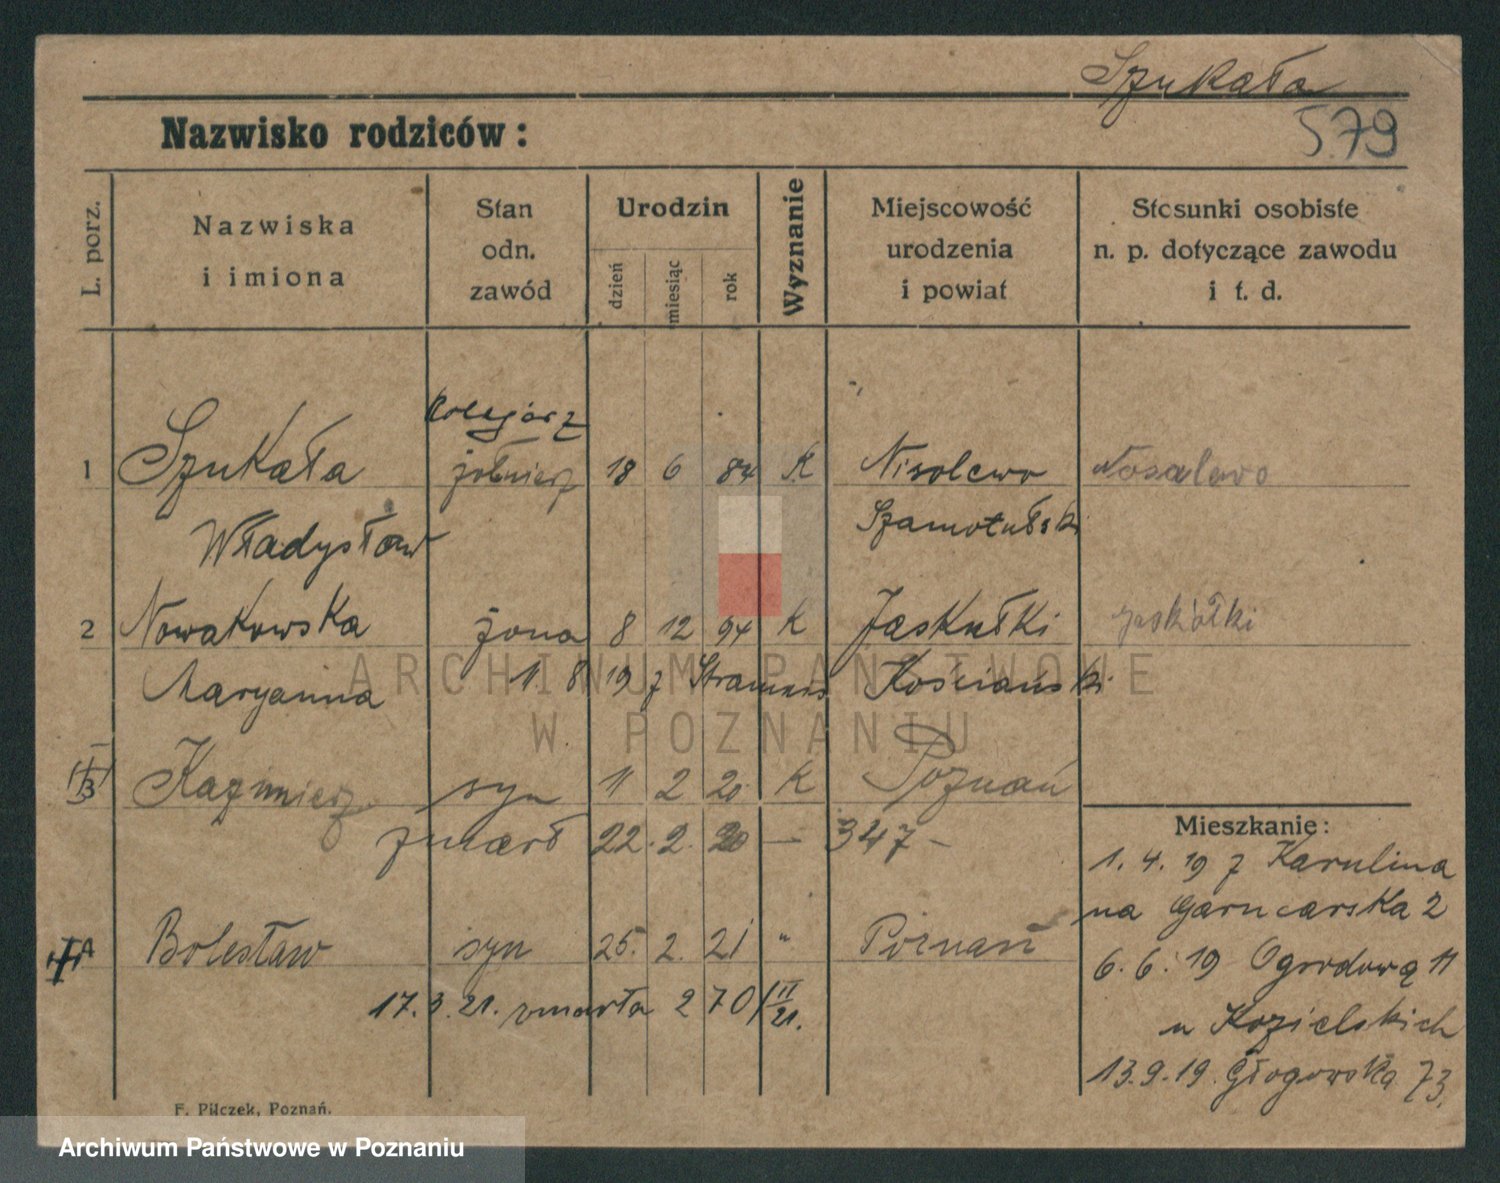 Szukała
Nazwisko rodziców:
579
L. porz.
Nazwiska
i imiona
Stan
odn.
zawód
Urodzin
dzień
miesiąc
rok
Wyznanie
Miejscowość
urodzenia
i powiat
Stosunki osobiste
n. p. dotyczące zawodu
i t. d.
1 Szukała żołnierz 18 6 84 K Nosalewo
Władysław Szamotulski
2 Nowakowska żona 8 12 94 K Jaskułki Jaskółki
Maryanna 1. 8 19 z Kościański
3 Kazimierz syn 11 2 20 K Poznań
zmarł 22. 2. 20 — 347 —
Mieszkanie:
1. 4. 19 z Karulina
na Garncarska 2
4 Bolesław syn 25. 2. 21 " Poznań
6. 6. 19 Ogrodową 11
17. 3. 21. zmarła 270/II 21.
u Kozielskich
13. 9. 19. Głogowska 73.
F. Pilczek, Poznań.
ARCHIWUM PAŃSTWOWE
W POZNANIU
Archiwum Państwowe w Poznaniu